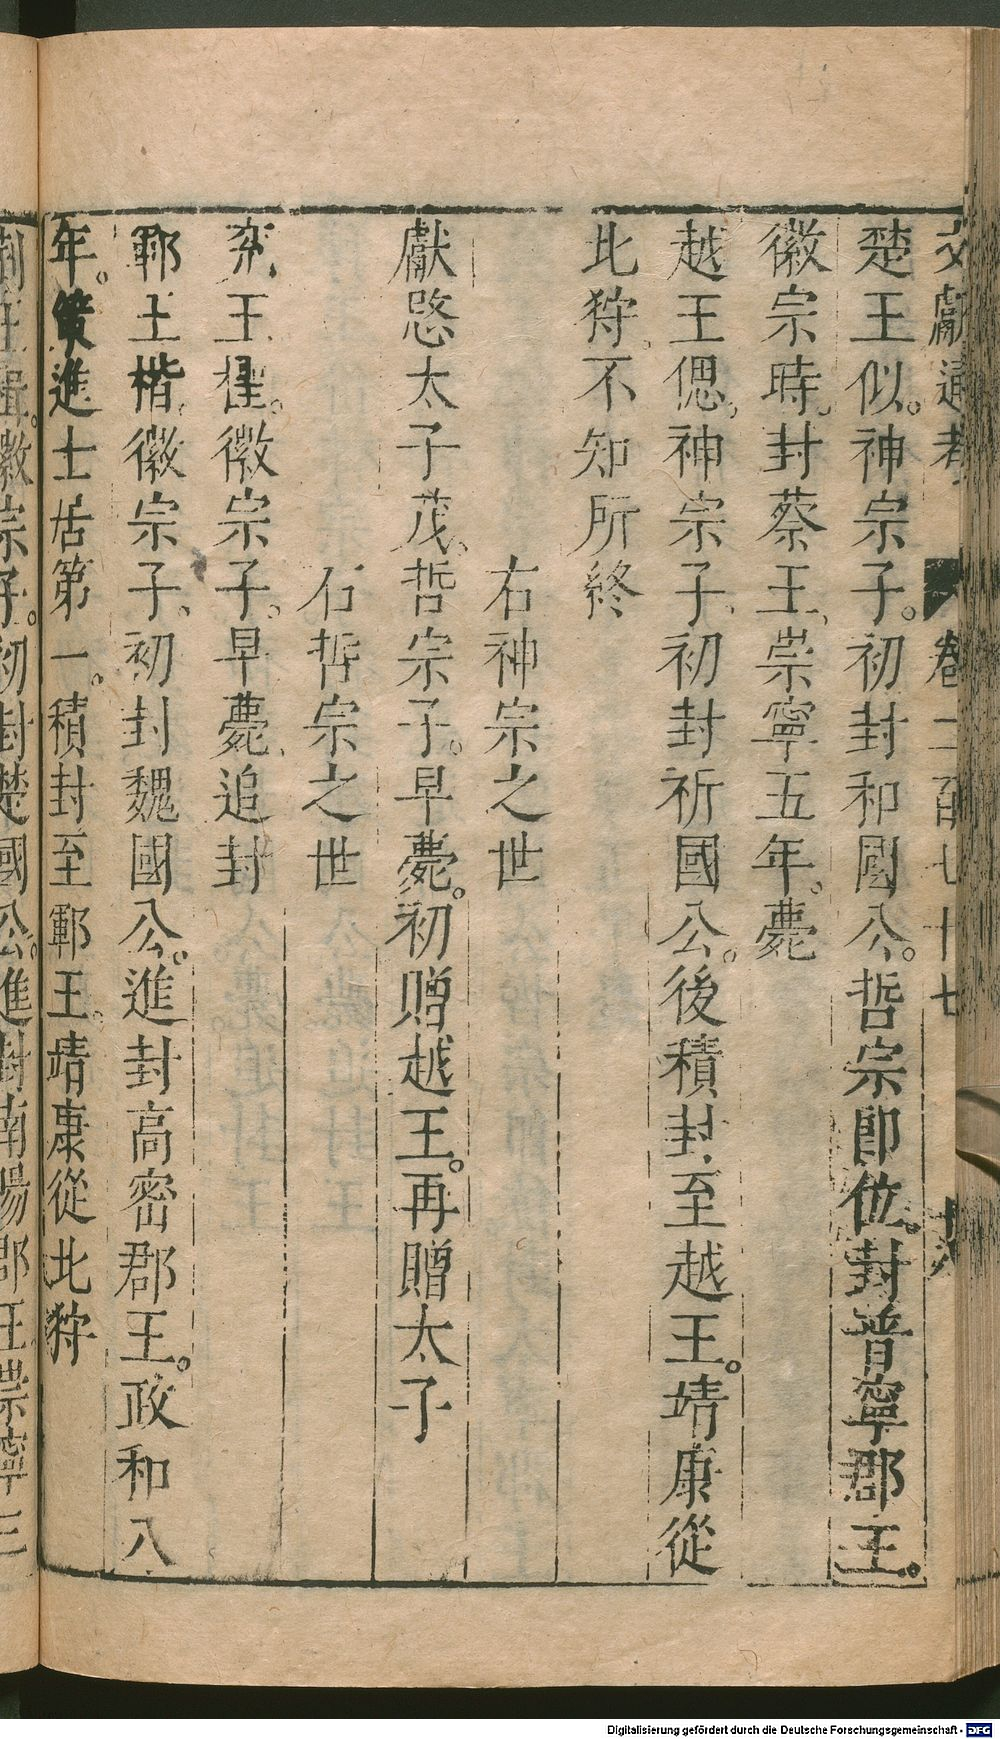 文獻通考 卷二百七十七 十八
楚王似。神宗子。初封和國公。哲宗卽位。封普寧郡王。
徽宗時。封蔡王。崇寧五年。薨
越王偲。神宗子。初封祈國公。後積封至越王。靖康從
北狩。不知所終
右神宗之世
獻愍太子茂。哲宗子。早薨。初贈越王。再贈太子
右哲宗之世
兗王檉。徽宗子。早薨。追封
鄆王楷。徽宗子。初封魏國公。進封高密郡王。政和八
年。策進士居第一。積封至鄆王。靖康從北狩
荆王楫。徽宗子。初封楚國公。進封南陽郡王崇寧三
Digitalisierung gefördert durch die Deutsche Forschungsgemeinschaft - DFG